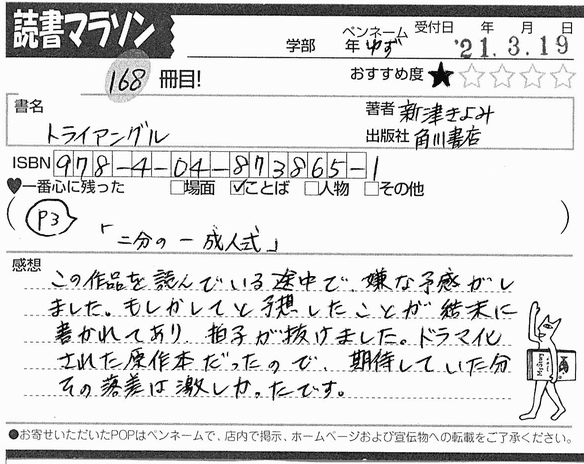 読書マラソン
学部 年 ペンネーム ゆず 受付日 年 月 日
'21.3.19
168 冊目! おすすめ度 ★☆☆☆☆
書名 著者 新津きよみ
トライアングル 出版社 角川書店
ISBN 978-4-04-873865-1
♥一番心に残った □場面 ☑ことば □人物 □その他
(P3
「二分の一成人式」)
感想
この作品を読んでいる途中で、嫌な予感がし
ました。もしかしてと予想したことが結末に
書かれてあり、拍子が抜けました。ドラマ化
された原作本だったので、期待していた分
その落差は激しかったです。
●お寄せいただいたPOPはペンネームで、店内で掲示、ホームページおよび宣伝物への転載をご了承ください。